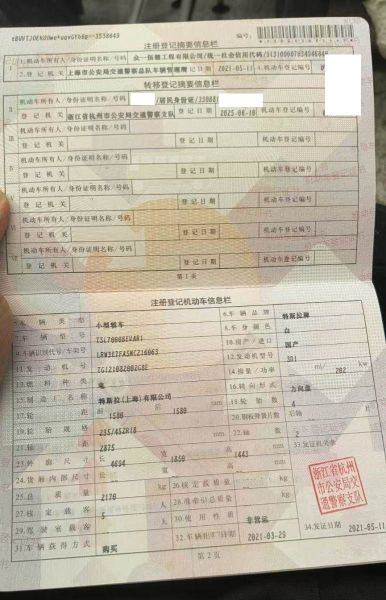 注册登记摘要信息栏
编号:
1.机动车所有人/身份证明名称/号码
工程有限公司/统一社会信用代码/
2.登记机关 上海市公安局交通警察总队车辆管理所 登记日期 2021-05-11 4.机动车登记编号
转移登记摘要信息栏
机动车所有人/身份证明名称/号码 /居民身份证/33088
登记机关 浙江省杭州市公安局交通警察支队 登记日期 2025-06-10 机动车登记编号
机动车所有人/身份证明名称/号码
登记机关 登记日期 机动车登记编号
机动车所有人/身份证明名称/号码
登记机关 登记日期 机动车登记编号
机动车所有人/身份证明名称/号码
登记机关 登记日期 机动车登记编号
机动车所有人/身份证明名称/号码
登记机关 登记日期 机动车登记编号
机动车所有人/身份证明名称/号码
登记机关 登记日期 机动车登记编号
第1页
注册登记机动车信息栏
5.车辆类型 小型轿车 6.车辆品牌 特斯拉牌
7.车辆型号 TSL7000BEVAR1 8.车身颜色 白
9.车辆识别代号/车架号 10.国产/进口 国产
11.发动机号 12.发动机型号 3D1
13.燃料种类 电 14.排量/功率 ml/ 202 kw
15.制造厂名称 特斯拉(上海)有限公司 16.转向形式 方向盘
17.轮距 前 1580 后 1580 mm 18.轮胎数 4
19.轮胎规格 235/45ZR18 20.钢板弹簧片数 后轴
21.轴距 2875 22.轴数 2
23.外廓尺寸 长 4694 宽 1850 高 1443 33.发证机关章
24.货厢内部尺寸
25.总质量 2170 kg 26.核定载质量 kg
27.核定载客 5 人 28.准牵引总质量 kg
29.驾驶室载客 人 30.使用性质 非营运
31.车辆获得方式 购买 32.车辆出厂日期 2021-03-29 34.发证日期 2021-05-11
浙江省杭州
市公安局交
通警察支队
第2页